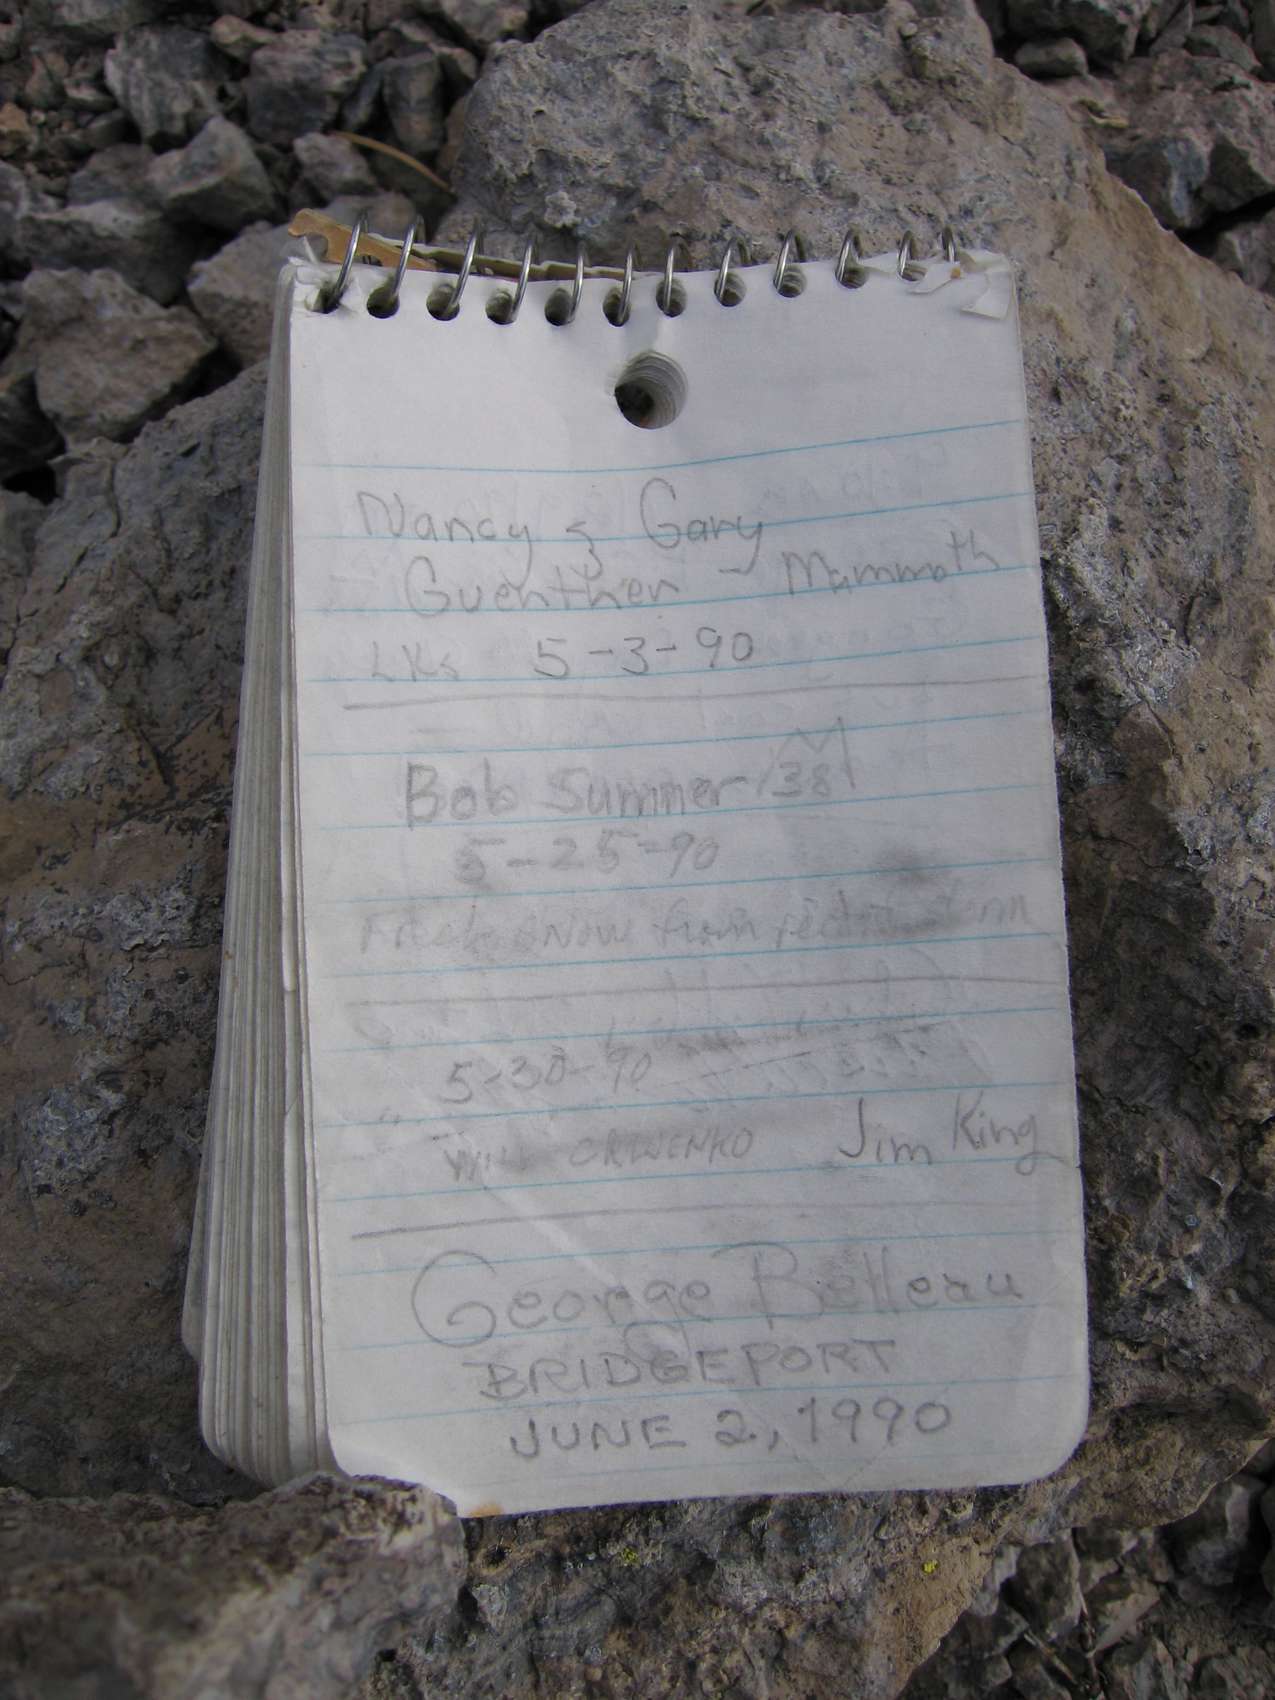 Nancy & Gary
Guenther - Mammoth
LKs 5-3-90
Bob Summer 38
5-25-90
Fresh snow from
5-30-90
Will Jim King
George Belleau
BRIDGEPORT
JUNE 2, 1990